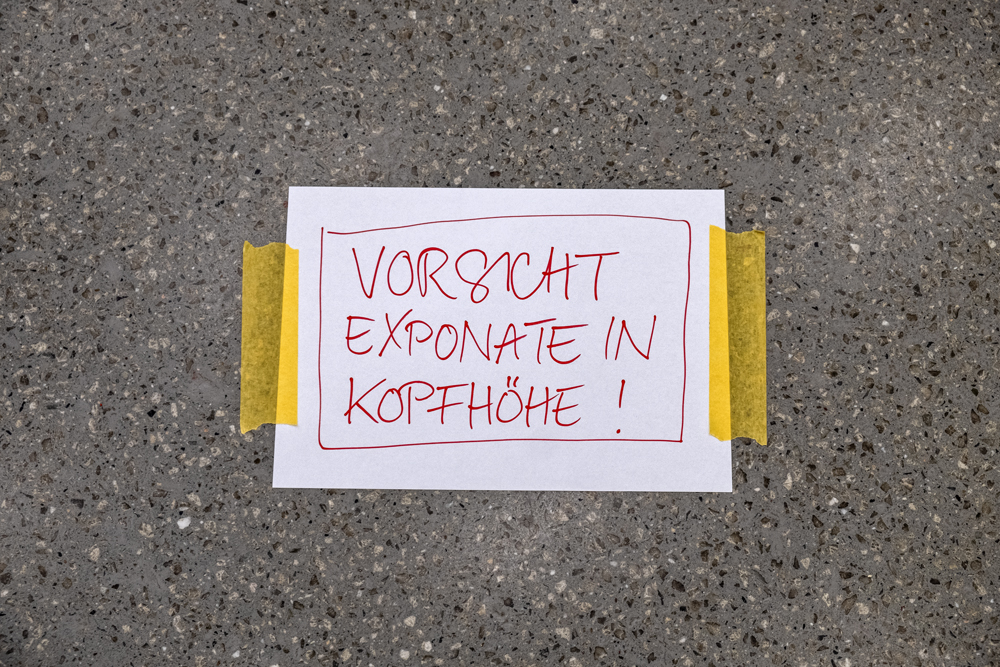 VORSICHT
EXPONATE IN
KOPFHÖHE !